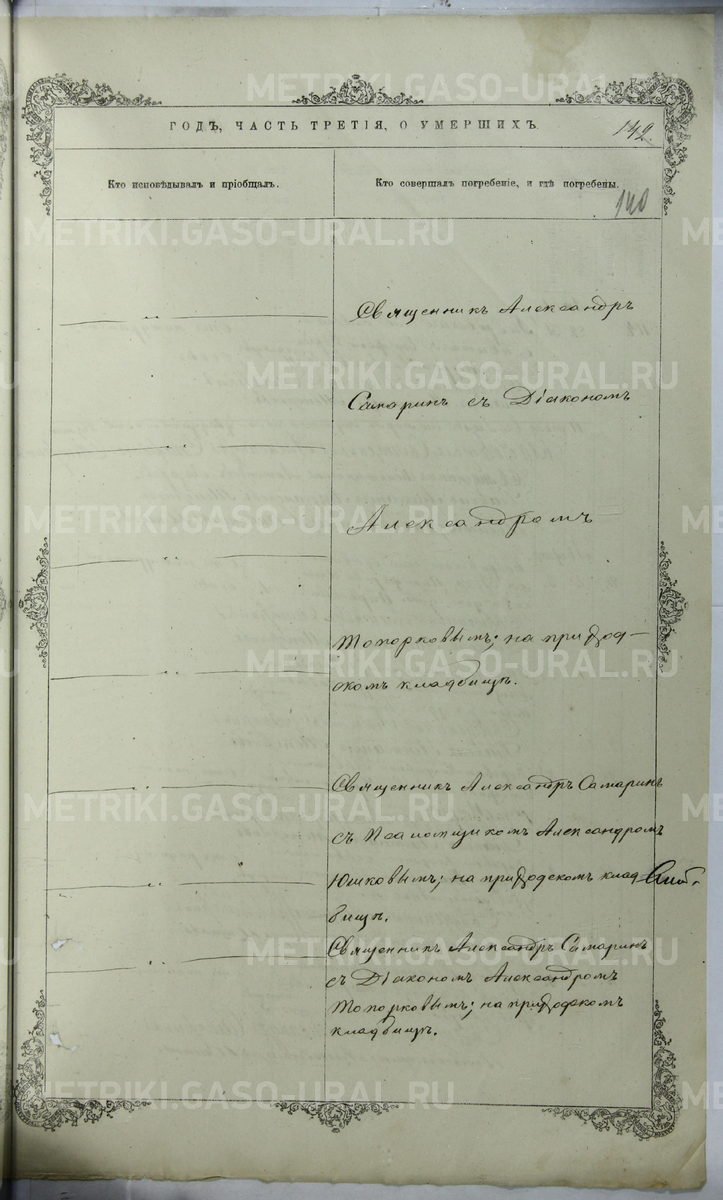 METRIKI.GASO-URAL.RU
ГОДЪ, ЧАСТЬ ТРЕТІЯ, О УМЕРШИХЪ.
142.
Кто исповѣдывалъ и пріобщалъ.
Кто совершалъ погребеніе, и гдѣ погребены.
140
Священникъ Александръ
Самаринъ съ Діакономъ
Александромъ
Топорковымъ; на приход-
скомъ кладбищѣ.
Священникъ Александръ Самаринъ
съ Псаломщикомъ Александромъ
Юшковымъ; на приходскомъ клад
бищѣ.
Священникъ Александръ Самаринъ
съ Діакономъ Александромъ
Топорковымъ; на приходскомъ
кладбищѣ.